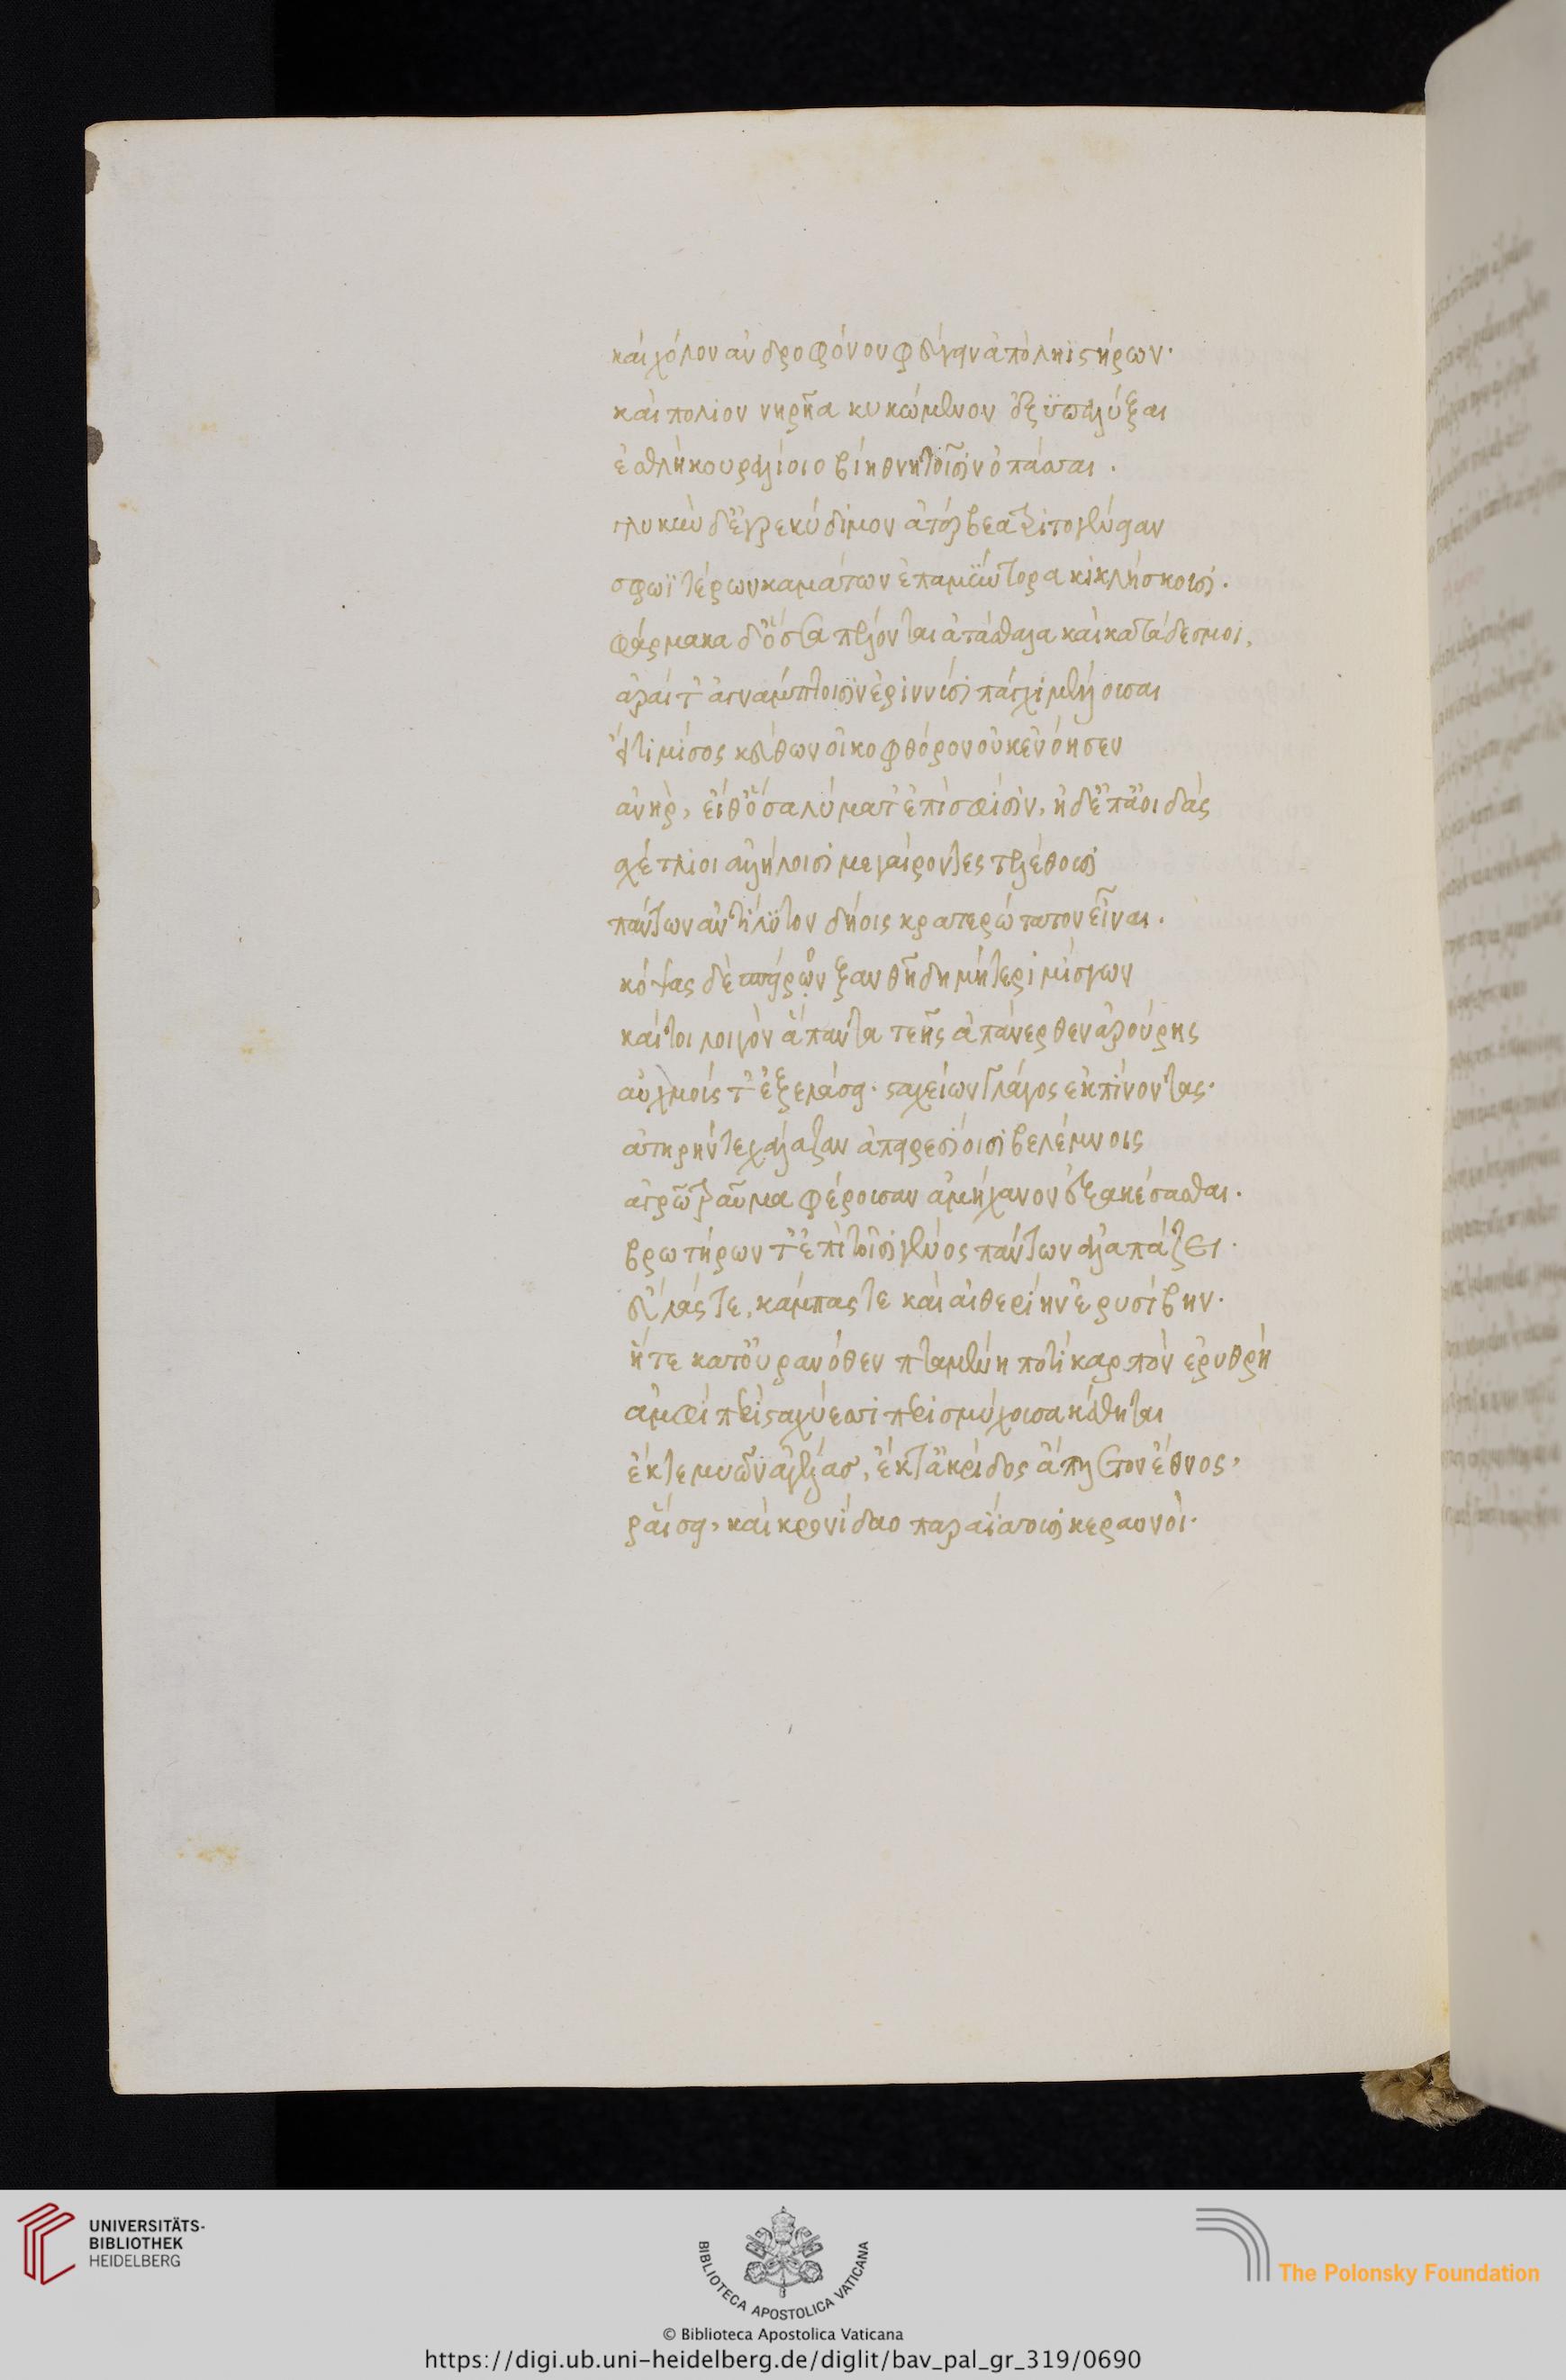 καὶ χόλον ἀνδροφόνου φεύγειν ἀπὸ ληϊστήρων·
καὶ πολιὸν νηρῆα κυκώμενον ἐξϋπαλύξαι
ἐσθλὴ κουραλίοιο βίη θνητοῖσιν ὀπάσσαι.
δ' ἐγρεκύδιμον ἀτάρβεα τριτογένειαν
σφωϊτέρων καμάτων ἐπαμύντορα κικλήσκουσι.
φάρμακα δ' ὅσσα πέλονται ἀτάσθαλα καὶ κατάδεσμοι,
ἀραί τ' ἀγνάμπτοισιν ἐριννύσι πάγχι μέλουσαι
μίσος κεύθων οἰκοφθόρον οὐκ ἐνόησεν
ἀνὴρ, εἴθ' ὅσα λύματ' ἐπὶ σφίσιν, ἠδ' ἐπαοιδὰς
σχέτλιοι ἀλλήλοισι μεγαίροντες τελέθουσι
πάντων ἀντίλυτον δήοις κρατερώτατον εἶναι.
κόψας δὲ σπείρων ξανθῆ δημήτερι μίσγων
καίτοι λοιγὸν ἅπαντα τεῆς ἀπάνερθεν ἀρούρης
αὐχμούς τ' ἐξελάσει· σταχείων γλάγος ἐκπίνοντας·
ἀτηρήν τε χάλαζαν ἀπειρεσίοισι βελέμνοις
ἀγρῶ τραῦμα φέρουσαν ἀμήχανον ἐξακέσασθαι.
βρωτήρων τ' ἐπὶ τοῖσι γένος πάντων ἀλαπάζει.
εὐλάς τε, κάμπας τε καὶ αἰθερίην ἐρυσίβην.
ἥτε κατ' οὐρανόθεν πταμένη ποτὶ καρπὸν ἐρυθρὴ
ἀμφὶ περὶ σταχύεσσι περισμύχουσα κάθηται
ἔκ τε μυῶν ἀγέλας, ἔκ τ' ἀκρίδος ἄπλητον ἔθνος,
ῥαίσει, καὶ κρονίδαο παραΐσσουσι κεραυνοὶ.
UNIVERSITÄTS-
BIBLIOTHEK
HEIDELBERG
BIBLIOTECA APOSTOLICA VATICANA
The Polonsky Foundation
© Biblioteca Apostolica Vaticana
https://digi.ub.uni-heidelberg.de/diglit/bav_pal_gr_319/0690